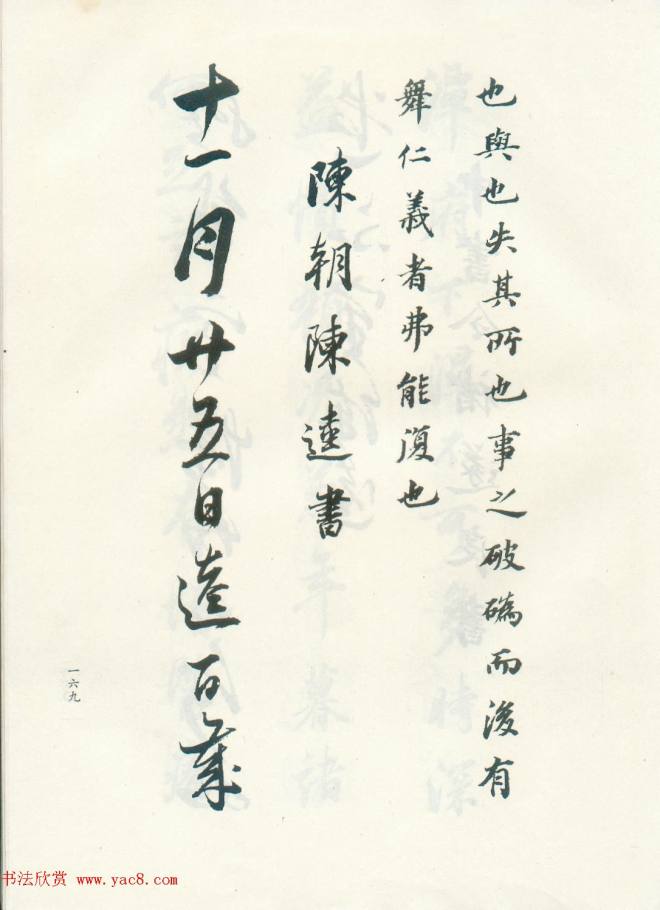 也與也失其所也事之破䃣而後有
舞仁義者弗能復也
陳朝陳逵書
十一月廿五日逵白歲
一六九
书法欣赏 www.yac8.com